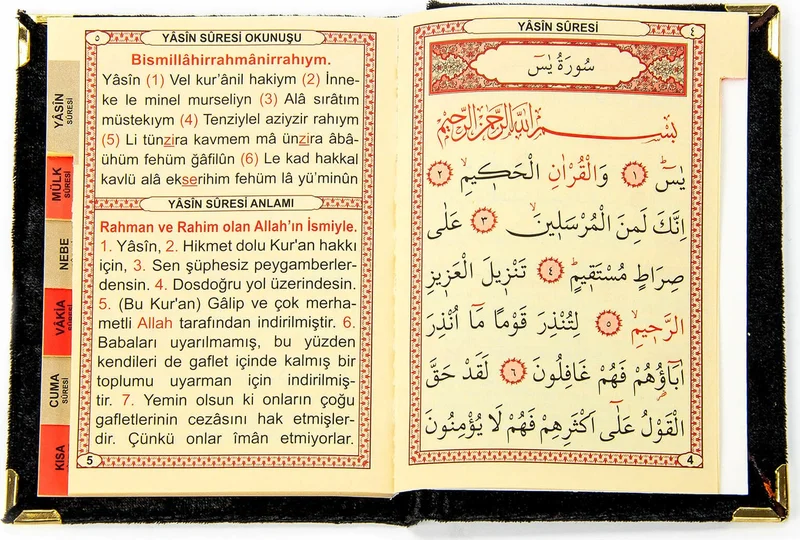 ٥
YÂSÎN SÛRESİ OKUNUŞU
Bismillâhirrahmânirrahıym.
Yâsîn (1) Vel kur’ânil hakiym (2) İnne-
ke le minel murseliyn (3) Alâ sırâtım
müstekıym (4) Tenziylel aziyzir rahıym
(5) Li tünzira kavmem mâ ünzira âbâ-
ühüm fehüm ğâfilûn (6) Le kad hakkal
kavlü alâ ekserihim fehüm lâ yü’minûn
YÂSÎN SÛRESİ ANLAMI
Rahman ve Rahim olan Allah’ın İsmiyle.
1. Yâsîn, 2. Hikmet dolu Kur'an hakkı
için, 3. Sen şüphesiz peygamberler-
densin. 4. Dosdoğru yol üzerindesin.
5. (Bu Kur'an) Gâlip ve çok merha-
metli Allah tarafından indirilmiştir. 6.
Babaları uyarılmamış, bu yüzden
kendileri de gaflet içinde kalmış bir
toplumu uyarman için indirilmiş-
tir. 7. Yemin olsun ki onların çoğu
gafletlerinin cezâsını hak etmişler-
dir. Çünkü onlar îmân etmiyorlar.
5
YÂSÎN
SÛRESİ
MÜLK
SÛRESİ
NEBE
VÂKIA
SÛRESİ
CUMA
SÛRESİ
KISA
YÂSÎN SÛRESİ
٤
سُورَةُ يٰسٓ
بِسْمِ اللّٰهِ الرَّحْمٰنِ الرَّحِيمِ
يٰسٓ ١ وَالْقُرْاٰنِ الْحَكِيمِ ٢
اِنَّكَ لَمِنَ الْمُرْسَلِينَ ٣ عَلٰى
صِرَاطٍ مُسْتَقِيمٍ ٤ تَنْزِيلَ الْعَزِيزِ
الرَّحِيمِ ٥ لِتُنْذِرَ قَوْمًا مَٓا اُنْذِرَ
اٰبَٓاؤُهُمْ فَهُمْ غَافِلُونَ ٦ لَقَدْ حَقَّ
الْقَوْلُ عَلٰٓى اَكْثَرِهِمْ فَهُمْ لَا يُؤْمِنُونَ
4